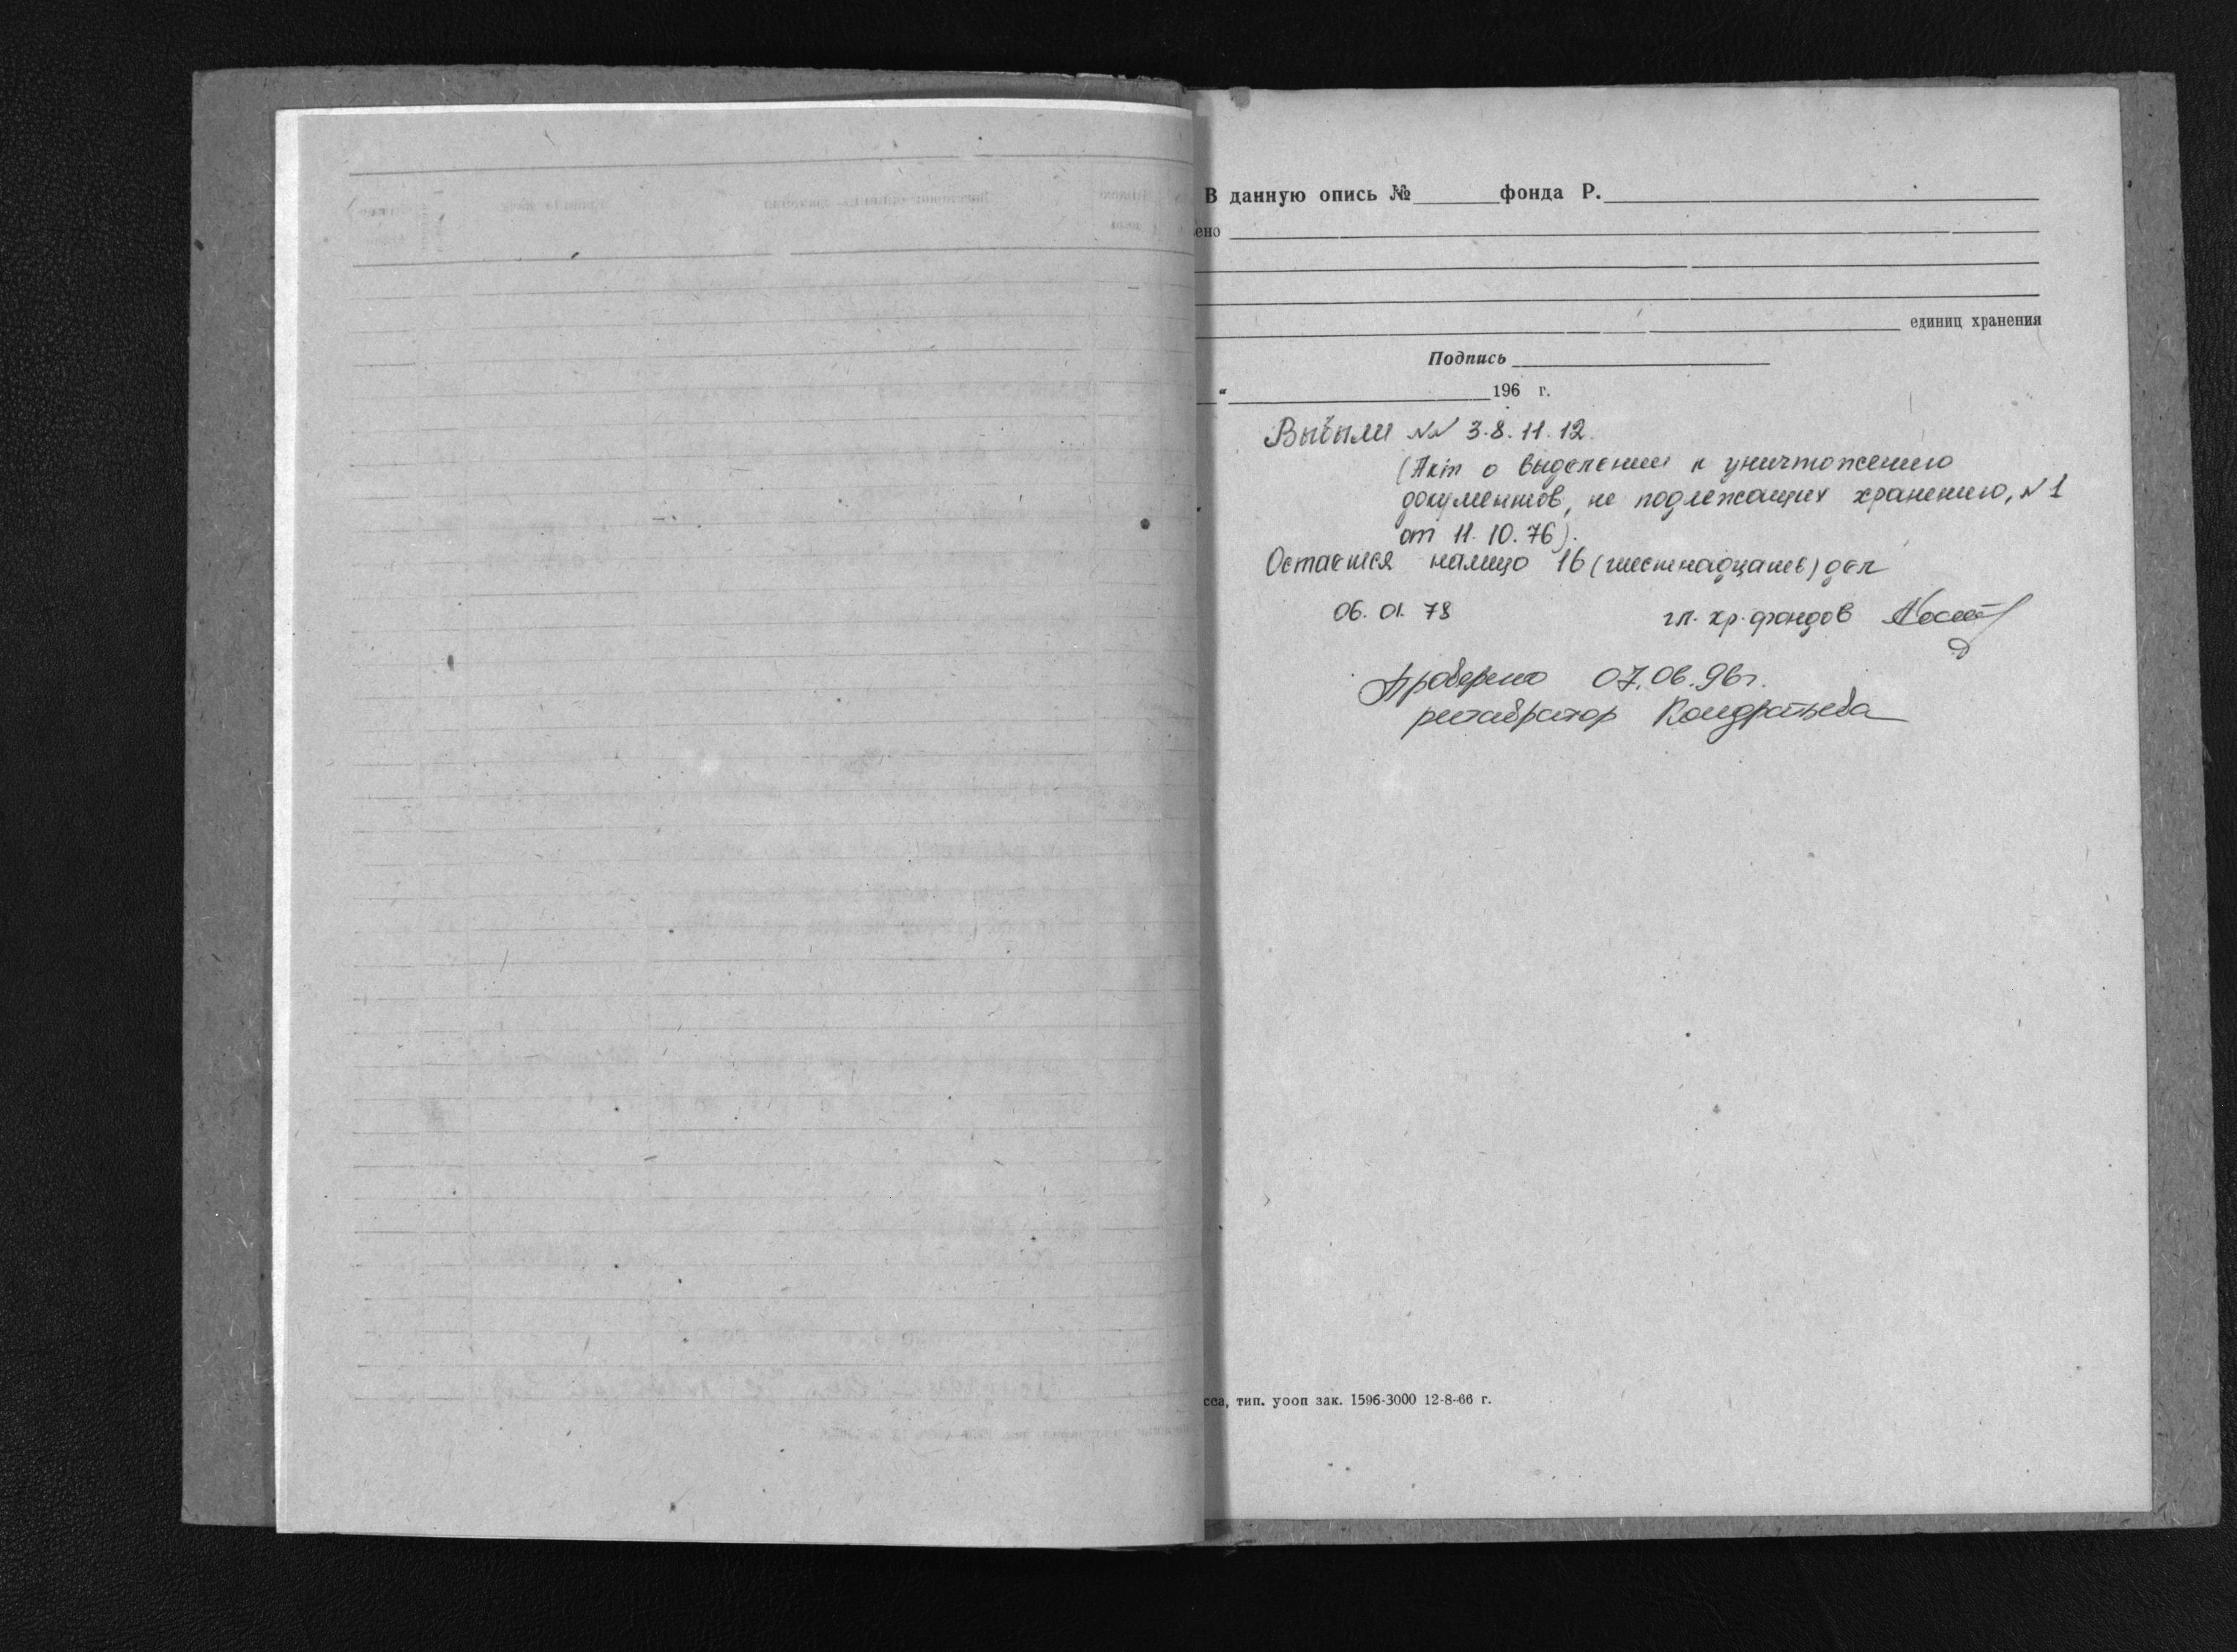 В данную опись № фонда Р.
ено
единиц хранения
Подпись
“ 196 г.
Выбыли NN 3.8.11.12.
(Акт о выделении к уничтожению
документов, не подлежащих хранению, N 1
от 11.10.76).
Остается налицо 16 (шестнадцать) дел
06.01.78 гл. хр. фондов
Проверено 07.06.96г.
реставратор Кондратьева
сса, тип. уооп зак. 1596-3000 12-8-66 г.